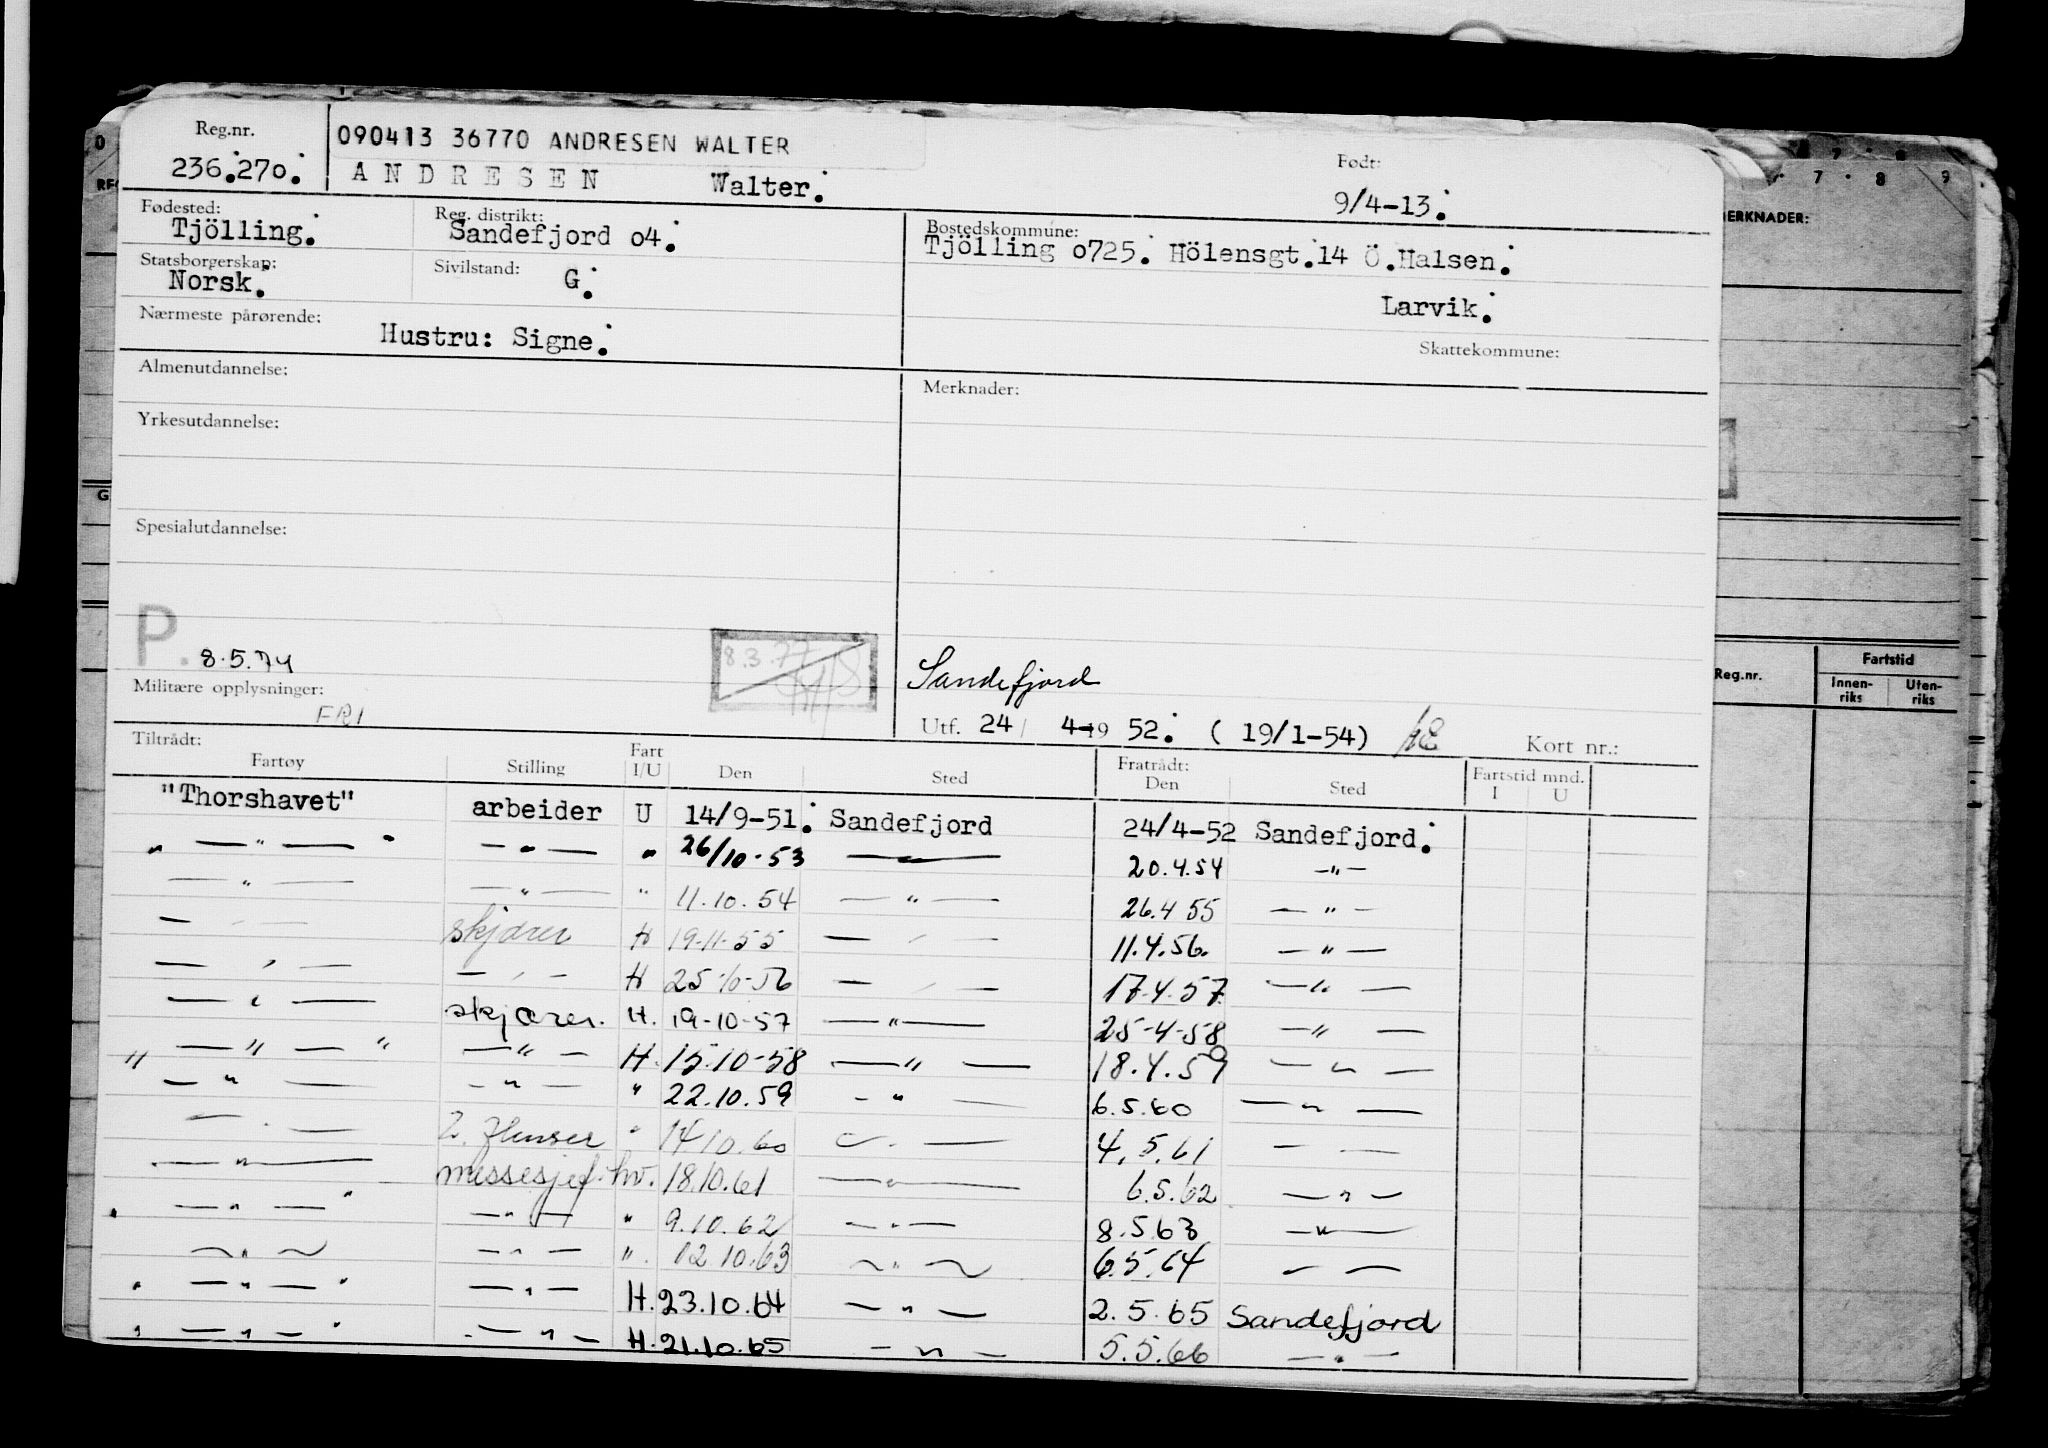 Reg.nr. 090413 36770 ANDRESEN WALTER
236.270. ANDRESEN Walter. Født: 9/4-13.
Fødested: Tjölling. Reg. distrikt: Sandefjord o4. Bostedskommune: Tjölling o725. Hölensgt.14 Ö.Halsen.
Statsborgerskap: Norsk. Sivilstand: G. Larvik.
Nærmeste pårørende: Hustru: Signe. Skattekommune:
Almenutdannelse: Merknader:
Yrkesutdannelse:
Spesialutdannelse:
P. 8.5.74 8.3.77 Sandefjord
Militære opplysninger: FRI
Utf. 24/ 4-19 52. ( 19/1-54) Kort nr.:
Tiltrådt: Fratrådt: Fartstid mnd.
Fartøy Stilling Fart I/U Den Sted Den Sted I U
"Thorshavet" arbeider U 14/9-51. Sandefjord 24/4-52 Sandefjord.
" — " — " — " — " 26/10-53 — " — 20.4.54 — " —
— " — — " — " 11.10.54 — " — 26.4 55 — " —
— " — skjærer H 19-11-55 — " — 11.4.56. — " —
— " — — " — H 25-10-56 — " — 17.4.57 — " —
— " — skjærer. H. 19-10-57 — " — 25-4-58 — " —
" — " — " — " — H. 15.10-58 — " — 18.4.59 — " —
— " — — " — " 22.10.59 — " — 6.5.60 — " —
— " — 2. flenser " 14 10.60 — " — 4.5.61 — " —
— " — messesjef. hv. 18.10.61 — " — 6.5.62 — " —
" — " — " — " — " 9.10.62 — " — 8.5.63 — " —
— " — — " — " 12.10.63 — " — 6.5.64 — " —
" — " — " — " — H. 23.10.64 — " — 2.5.65 Sandefjord
" — " — " — " — H. 21.10.65 — " — 5.5.66 — " —
MERKNADER:
Reg.nr. Fartstid
Innenriks Utenriks